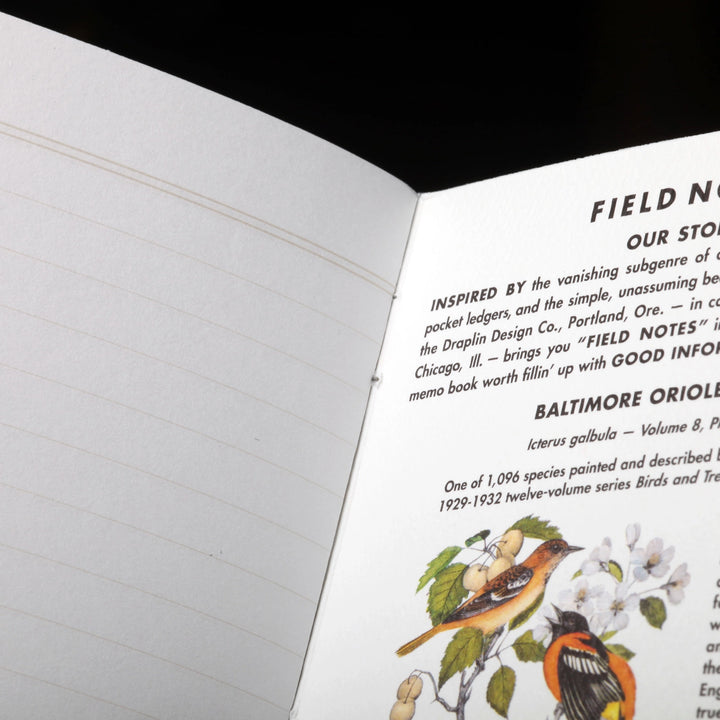 FIELD
OUR
INSPIRED BY the vanishing subgenre of
pocket ledgers, and the simple, unassuming
the Draplin Design Co., Portland, Ore. — in
Chicago, Ill. — brings you "FIELD NOTES"
memo book worth fillin' up with GOOD
BALTIMORE ORIOLE
Icterus galbula — Volume 8,
One of 1,096 species painted and described
1929-1932 twelve-volume series Birds and